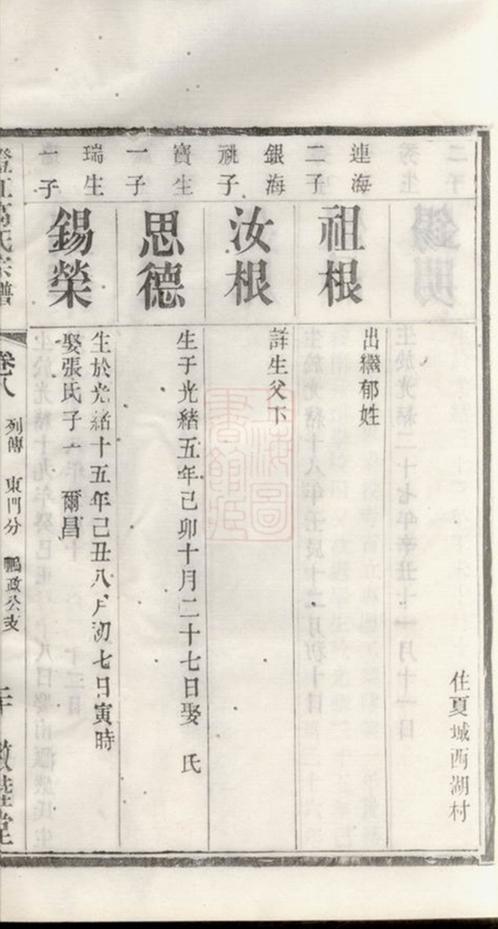 住夏城西湖村
連海
二子
祖根
出繼郁姓
銀海
祧子
汝根
詳生父下
寶生
一子
思德
生于光緒五年己卯十月二十七日娶　氏
瑞生
一子
錫榮
生於光緒十五年己丑八月初七日寅時
娶張氏子一　爾昌
澄江高氏宗譜
卷八
列傳　東門分　鵬政公支